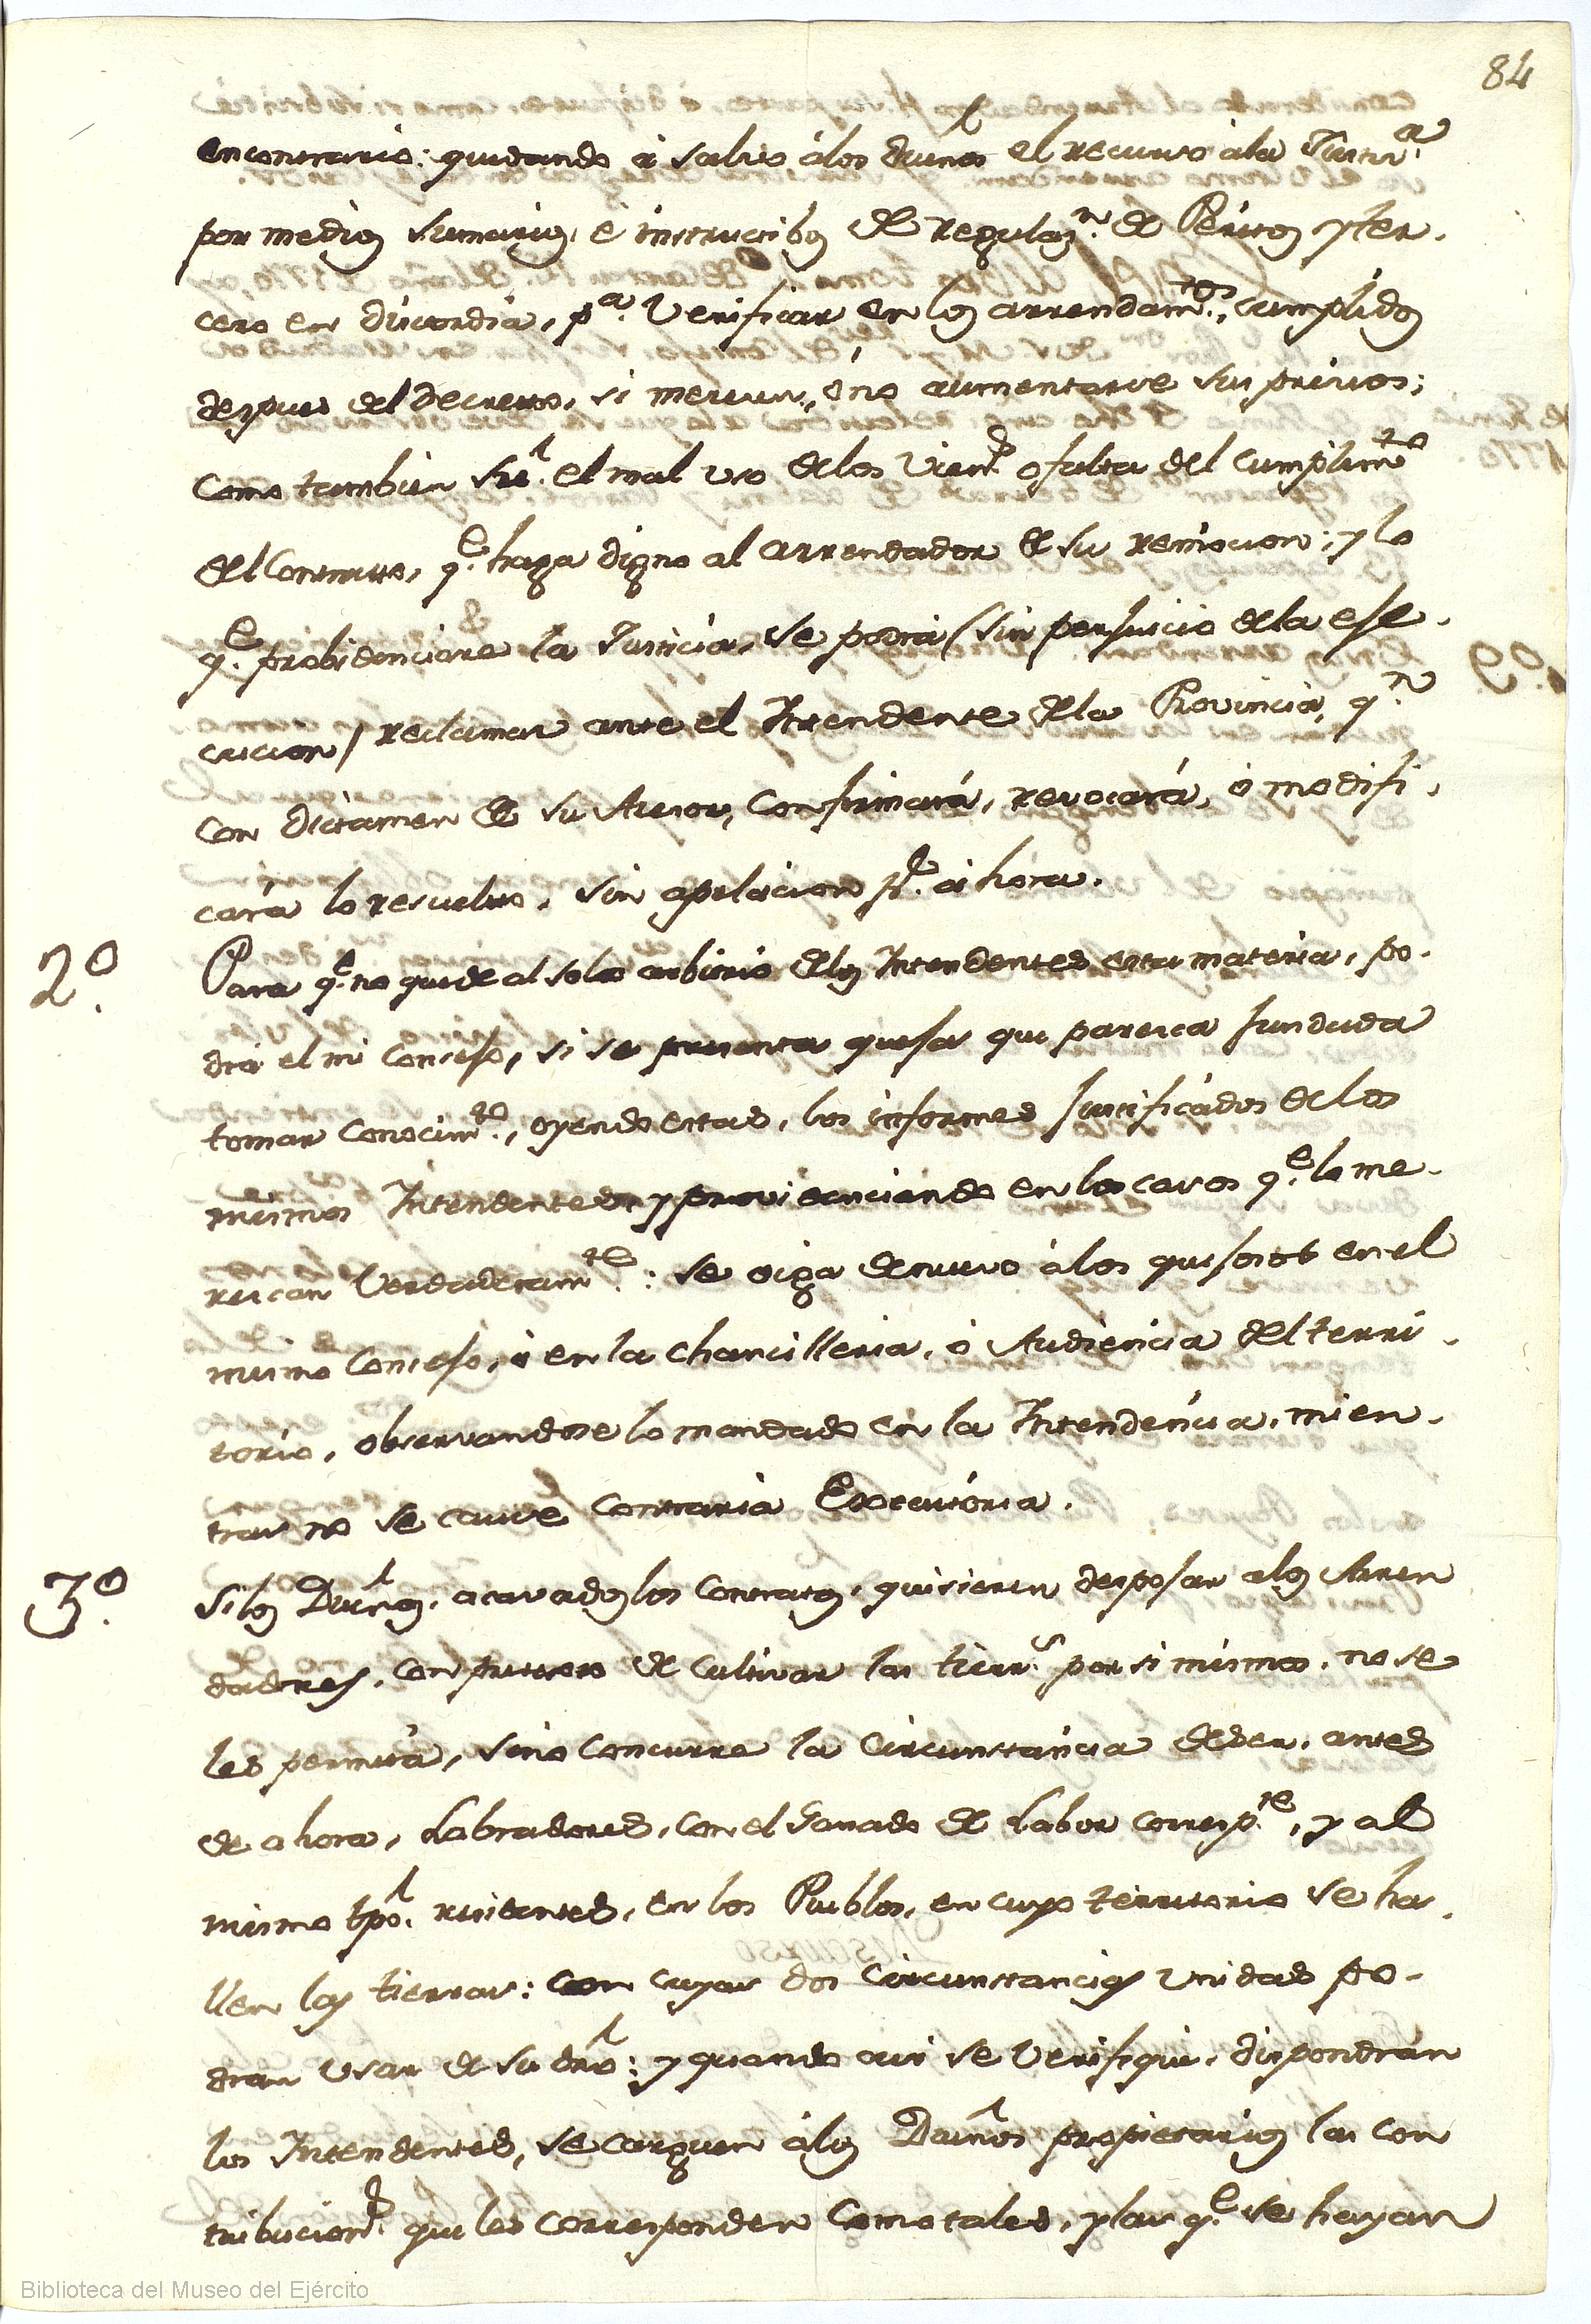 84
encontrario: quedando á salvo álos dueños el recurso ála Justa.
por medios sumarios, é instructibos de Regulazn. de Peritos y ter-
cero en discordia, pa. Verificar en los arrendamtos., cumplidos
despues del decreto, si merecen, ó no aumentarse sus precios;
como tambien sre. el mal uso delos Viens. ó falta del cumplimto
del Contrato, qe. haga digno al arrendador de su remocion; y lo
qe. probidenciare la Justicia, se podrá (sin perjuicio dela eje-
cucion) reclamar ante el Intendente dela Provincia, qn.
con dictamen de su Asesor, confirmará, revocará, ó modifi-
cará lo resuelto, sin apelacion pr. ahora.
2º. Para qe. no quede al solo arbitrio delos Intendentes esta materia, po-
drá el mi Consejo, si se presenta queja que paresca fundada
tomar conocimto., oyendo estas, los informes justificados delos
mismos Intendentes y providenciando en los casos qe. lo me-
rescan Verdaderamte.: se oiga de nuevo álos quejosos en el
mismo Consejo, ó en la chancilleria, ó Audiencia del terri-
torio, observandose lo mandado en la Intendencia, mien-
tras no se cause contraria Executoria.
3º. Si los Dueños, acavados los contratos, quisieren despojar alos Arren
dadores, con pretexto de cultivar las tierrs. por si mismos, no se
les permitá, sino concurre la circunstancia de ser, antes
de ahora, Labradores, con el Ganado de Labor correspte., y al
mismo tpo. residentes, en los Pueblos, en cuyo territorio se ha-
llen las tierras: con cuyas dos circunstancias unidas po-
dran usar de su dro: y quando asi se Verifique, dispondrán
los Intendentes, se carguen álos Dueños propietarios las con
tribucions. que les corresponden como tales, y las qe. se hayan
Biblioteca del Museo del Ejército